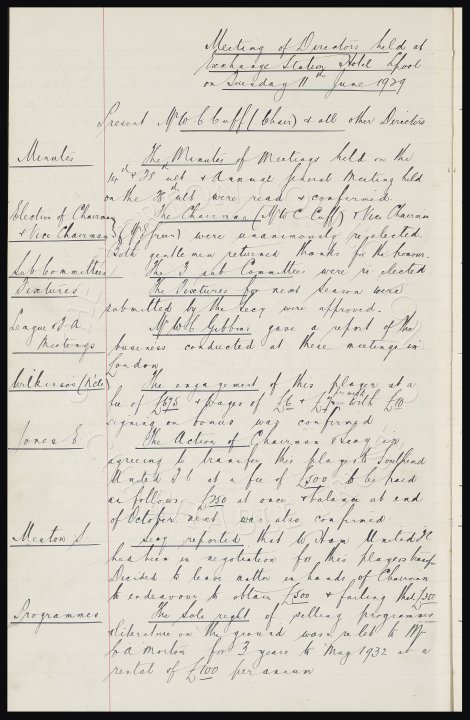 Meeting of Directors held at
Exchange Station Hotel Lpool
on Tuesday 11th June 1929
Present Mr W C Cuff (Chair) & all other Directors
Minutes The Minutes of Meetings held on the
14th & 31st ult & Annual General Meeting held
on the ult were read & confirmed
Election of Chairman The Chairman (Mr W C Cuff) & Vice Chairman
& Vice Chairman were unanimously reelected
Both gentlemen returned thanks for the honour.
Sub Committees The 3 sub Committees were re-elected
Fixtures The Fixtures for next season were
submitted by the Secy were approved.
League & F A Mr W C Gibbins gave a report of the
Meetings business conducted at these meetings in
London
Wilkinson (Nkle) The engagement of this player at a
fee of £675 & wages of £6 & £7 with £10
signing on bonus was confirmed
Jones E. The Action of Chairman & Secy in
agreeing to transfer this player to Southend
United F C at a fee of £500 to be paid
as follows. £250 at once & balance at end
of October next was also confirmed
Meston S. Secy reported that W Ham United FC
had been in negotiation for this players transfer
Decided to leave matter in hands of Chairman
to endeavour to obtain £500 & failing that £350
Programmes The Sole right of selling programmes
& literature on the ground was relet to Mr
Morton for 3 years to May 1932 at a
rental of £100 per annum